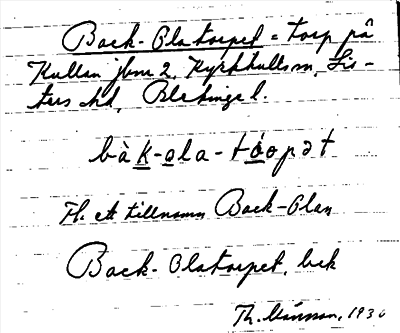 Back-Olatorpet = torp på
Kullan jbnr 2, Kyrkhults sn, Lis-
ters hd, Blekinge l.
bàk-ola-tóopət
Av ett tillnamn Back-Olan
Back-Olatorpet, bek
Th. 1930